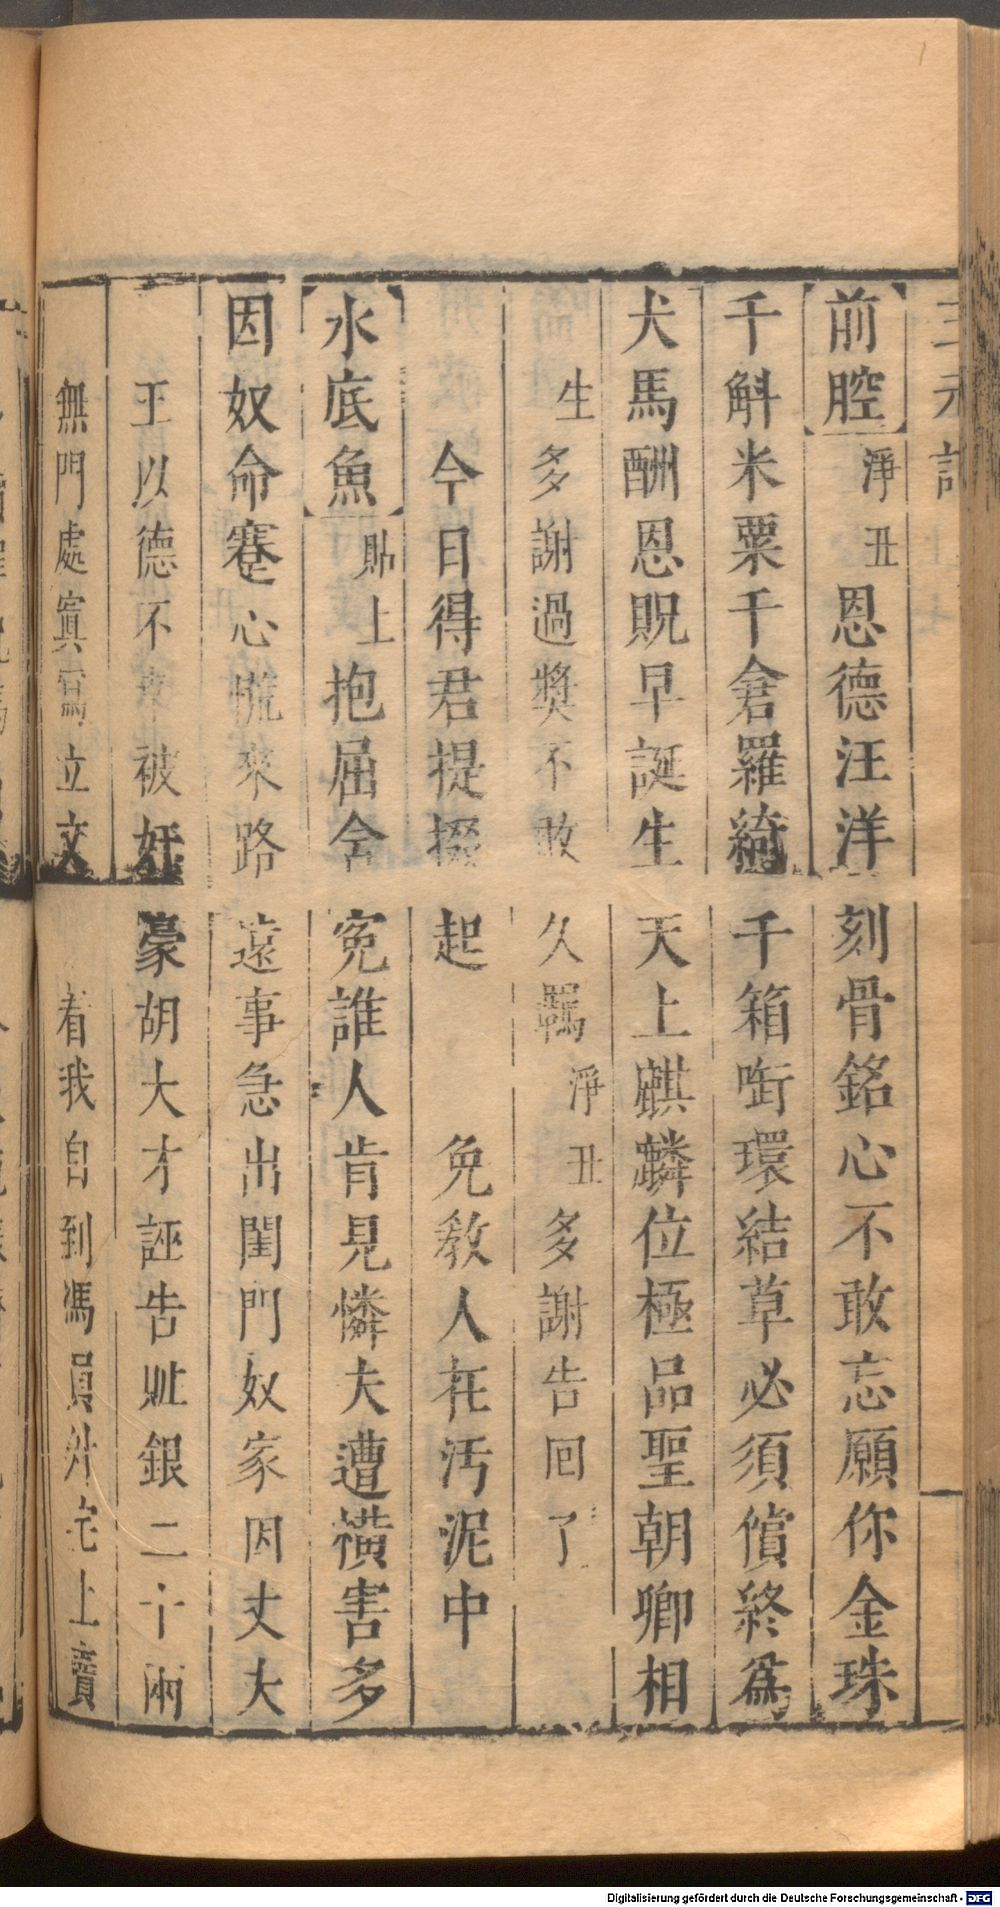 三元記
前腔淨丑恩德汪洋刻骨銘心不敢忘願你金珠
千斛米粟千倉羅綺千箱啣環結草必須償終爲
犬馬酬恩貺早誕生天上麒麟位極品聖朝卿相
生多謝過獎不敢久羈淨丑多謝告回了
今日得君提掇起免教人在汚泥中
水底魚貼上抱屈含寃誰人肯見憐夫遭橫害多
因奴命蹇心慌來路遠事急出閨門奴家因丈夫
王以德不幸被奸豪胡大才誣告賍銀二十兩
無門處寘寫立文看我自到馮員外宅上賣
Digitalisierung gefördert durch die Deutsche Forschungsgemeinschaft - DFG